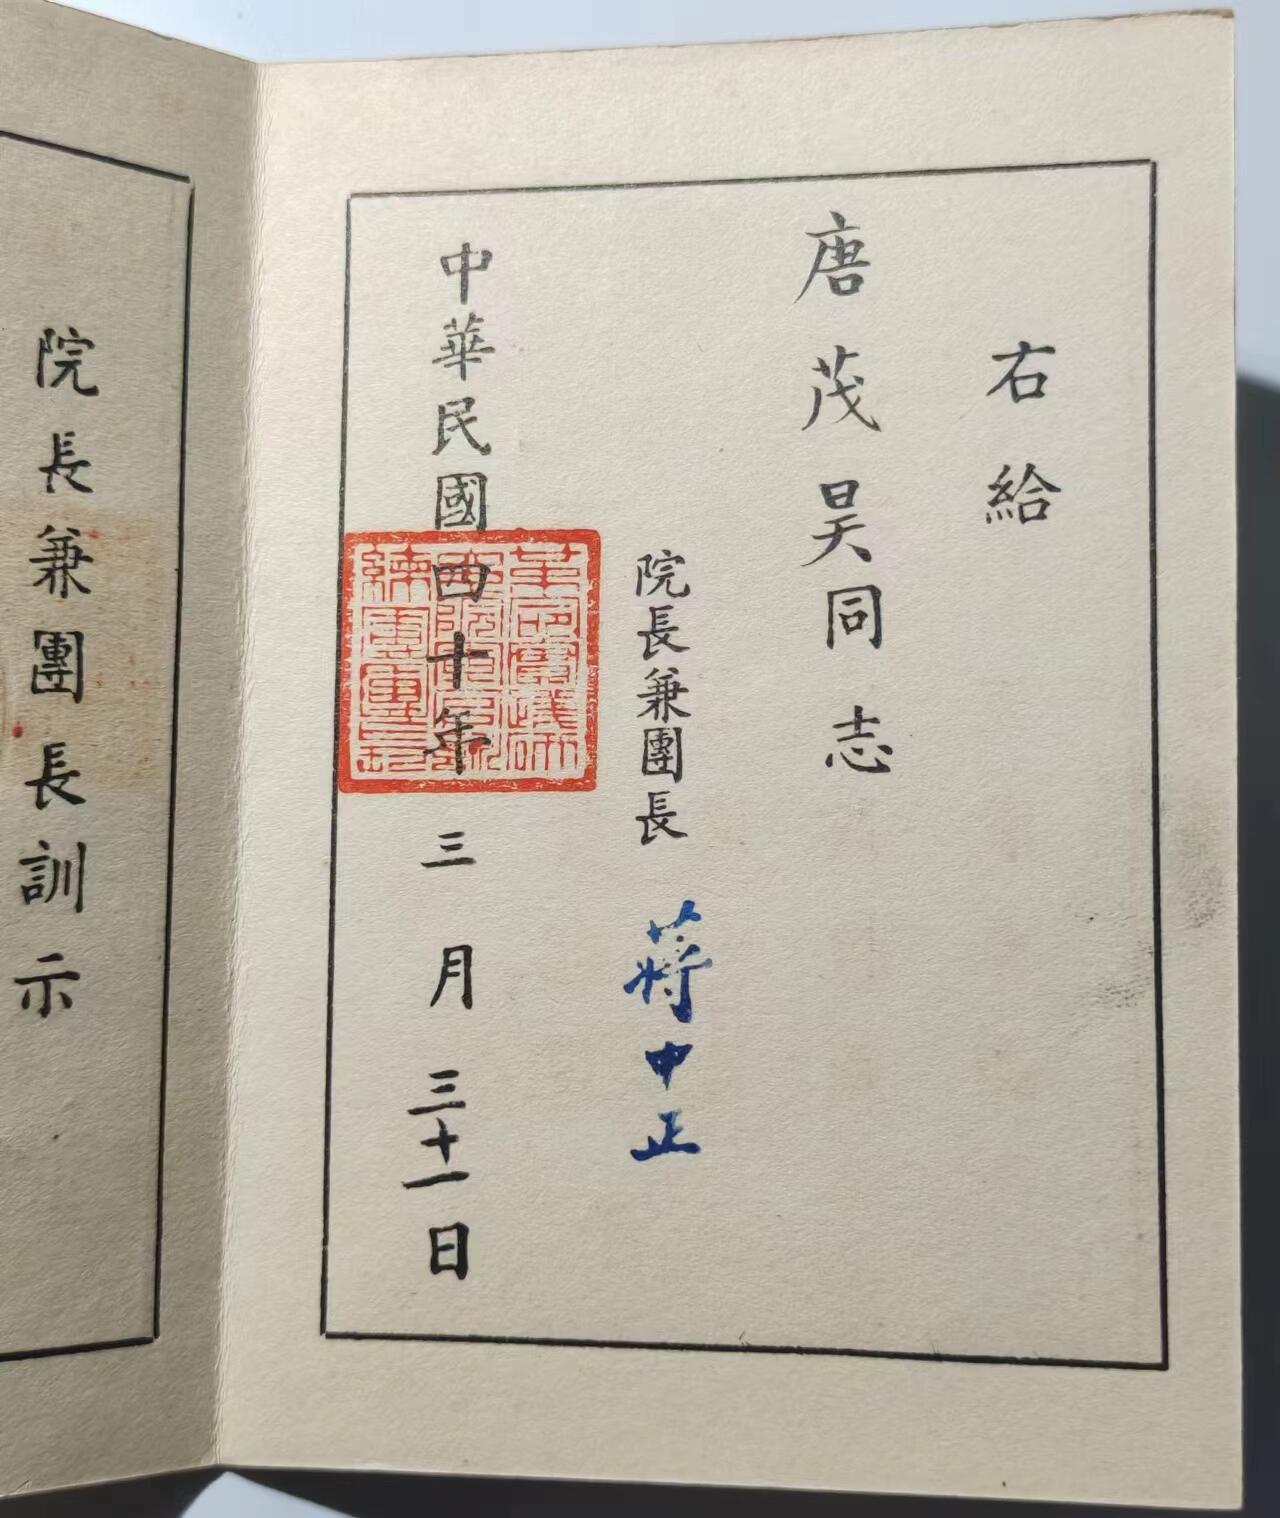 右給
唐茂昊同志
院長兼團長 蔣中正
中華民國四十年三月三十一日
院長兼團長訓示